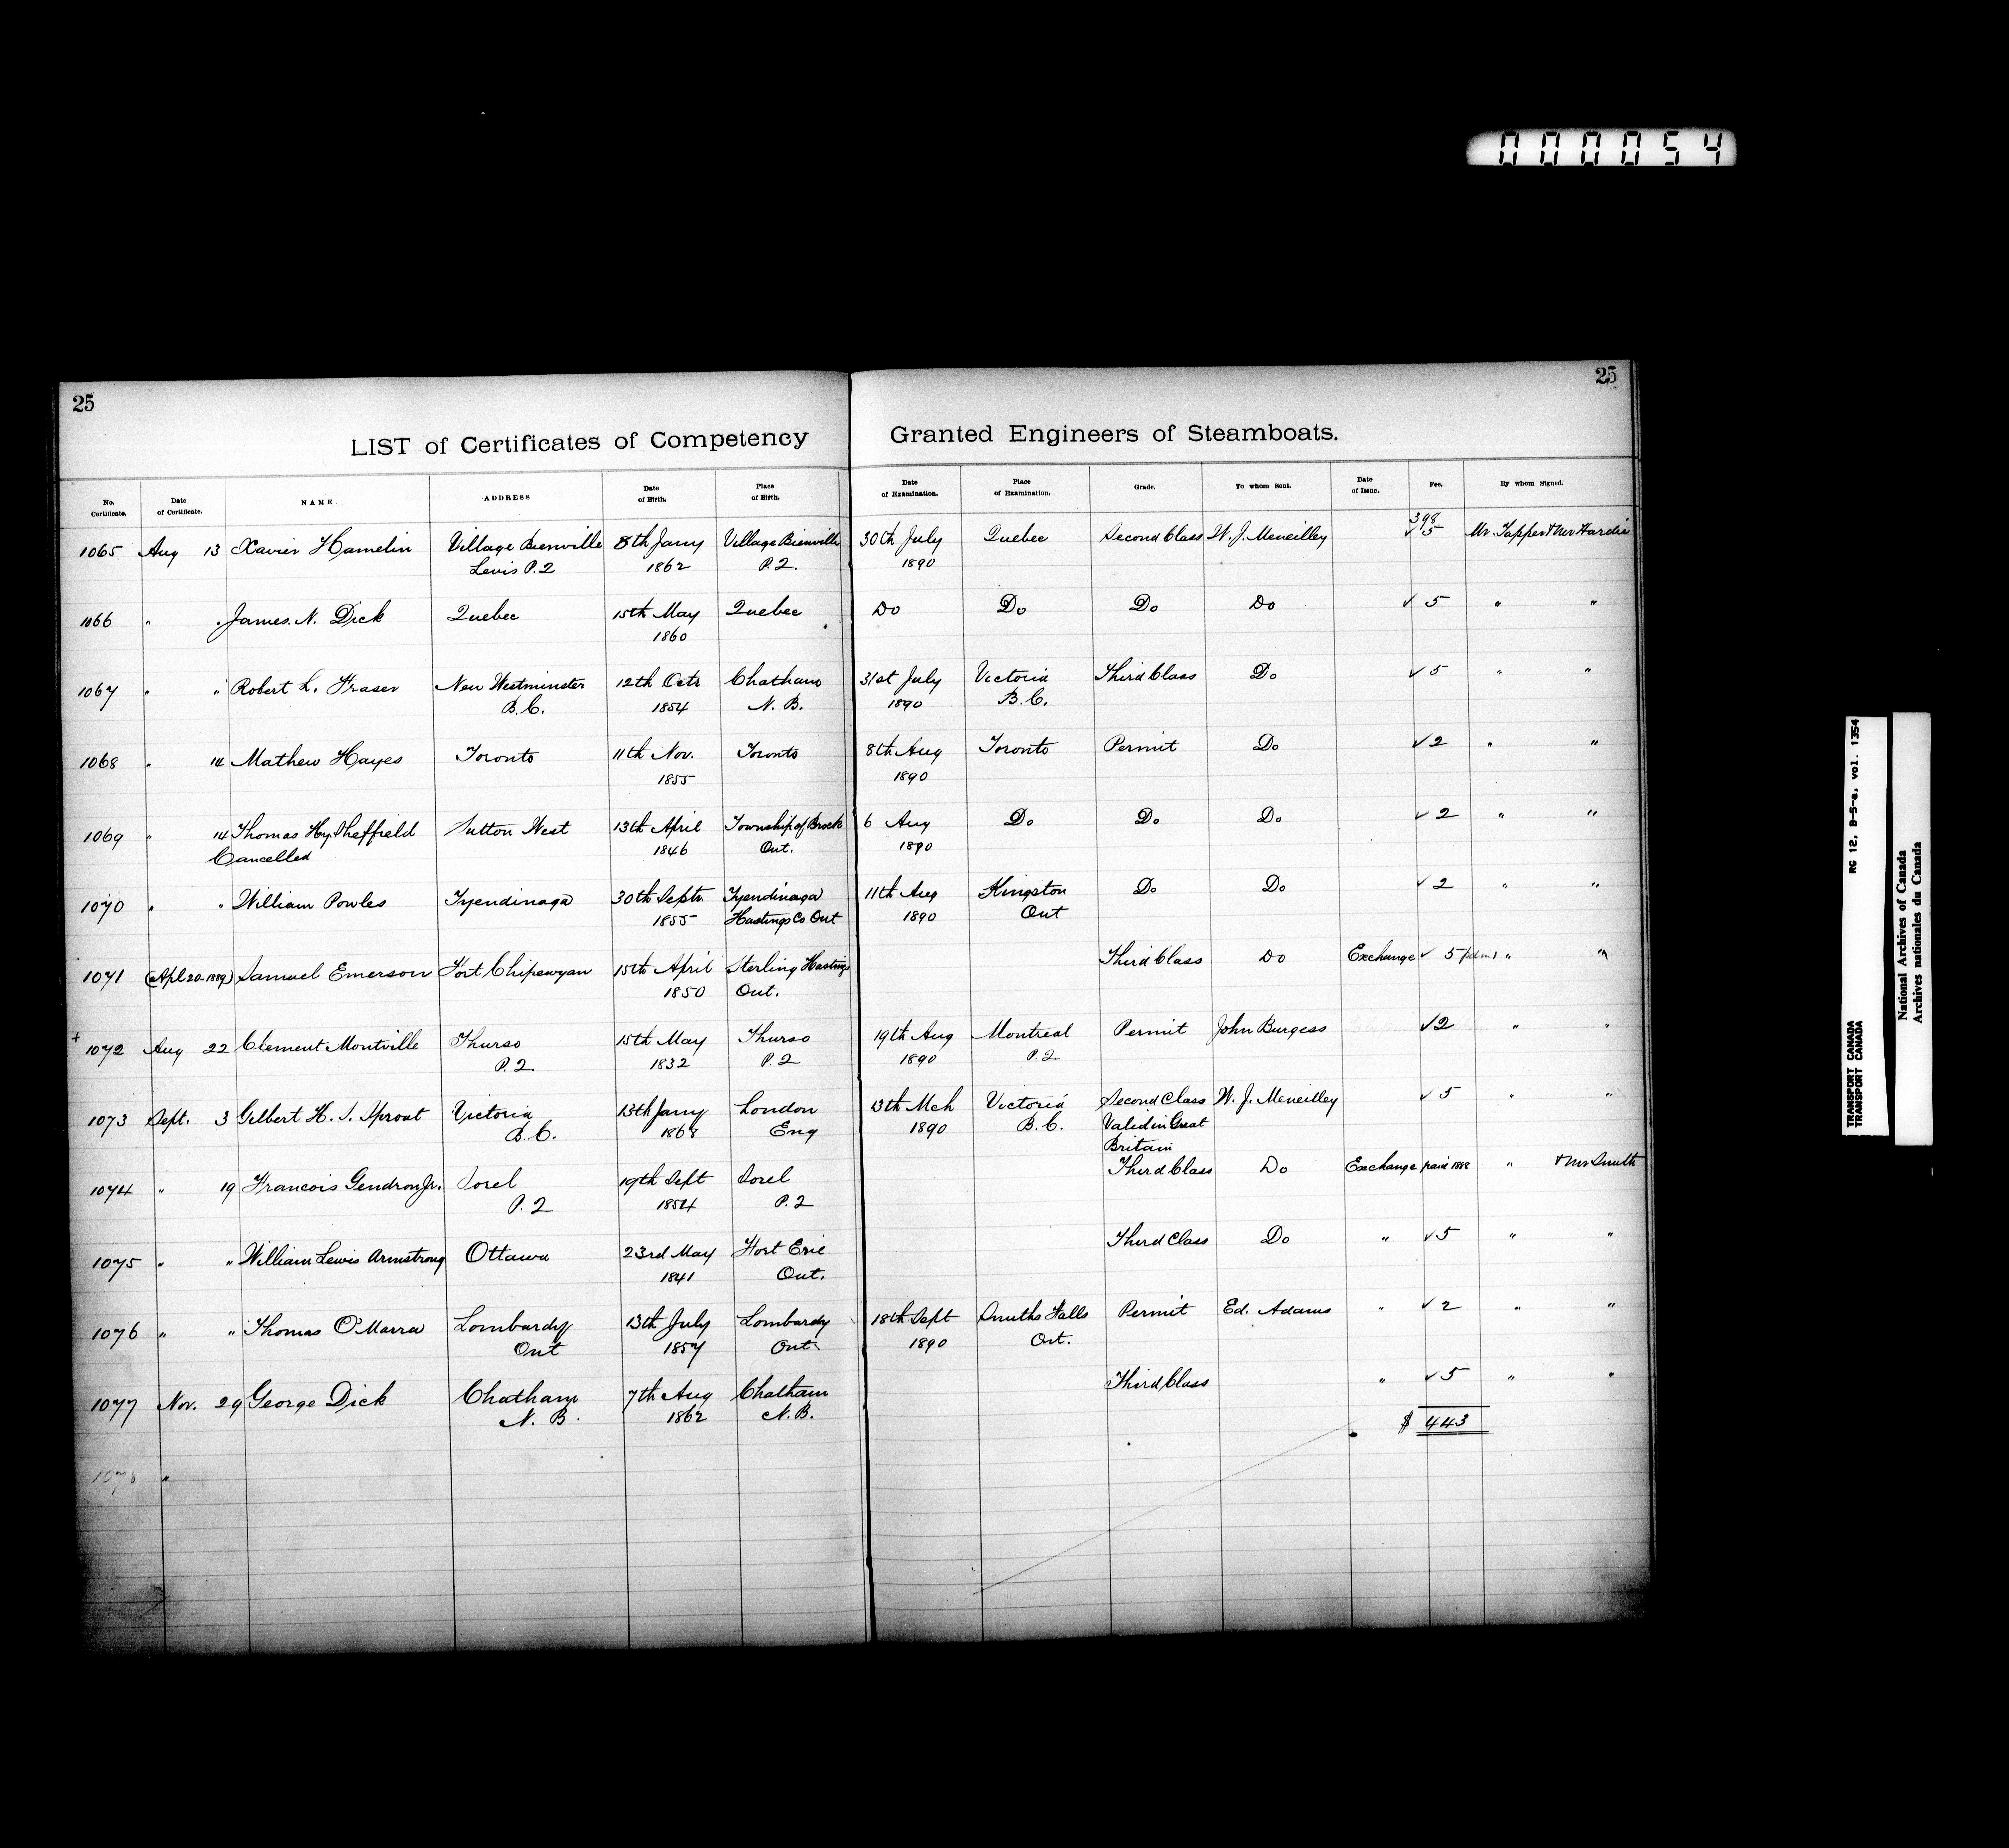 000054
25
25
LIST of Certificates of Competency Granted Engineers of Steamboats.
No. Certificate. Date of Certificate. NAME. ADDRESS Date of Birth. Place of Birth. Date of Examination. Place of Examination. Grade. To whom Sent. Date of Issue. Fee. By whom Signed.
398
1065 Aug 13 Xavier Hamelin Village Bienville 8th Jany Village Bienville 30th July Quebec Second Class W. J. Meneilley √ 5 Mr. Tapper & Mr Hardie
Levis P.Q 1862 P.Q. 1890
1066 " " James. N. Dick Quebec 15th May Quebec Do Do Do Do √ 5 " "
1860
1067 " " Robert L. Fraser New Westminster 12th Octr Chatham 31st July Victoria Third Class Do √ 5 " "
B.C. 1854 N. B. 1890 B.C.
1068 " 14 Mathew Hayes Toronto 11th Nov. Toronto 8th Aug Toronto Permit Do √ 2 " "
1855 1890
1069 " 14 Thomas Hy. Sheffield Sutton West 13th April Township of Brock 6 Aug Do Do Do √ 2 " "
Cancelled 1846 Ont. 1890
1070 " " William Powles Tyendinaga 30th Septr. Tyendinaga 11th Aug Kingston Do Do √ 2 " "
1855 Hastings Co Ont 1890 Ont
1071 (Apl 20-1889) Samuel Emerson Fort Chipewyan 15th April Sterling Hastings Third Class Do Exchange √ 5 " "
1850 Ont.
+ 1072 Aug 22 Clement Montville Thurso 15th May Thurso 19th Aug Montreal Permit John Burgess √ 2 " "
P.Q. 1832 P.Q 1890 P.Q
1073 Sept. 3 Gilbert H. S. Sproat Victoria 13th Jany London 13th Mch Victoria Second Class W. J. Meneilley √ 5 " "
B.C. 1868 Eng 1890 B.C. Valid in Great
Britain
1074 " 19 Francois Gendron Jr. Sorel 19th Sept Sorel Third Class Do Exchange paid 1888 " & Mr Smith
P.Q 1854 P.Q
1075 " " William Lewis Armstrong Ottawa 23rd May Fort Erie Third Class Do " √ 5 " "
1841 Ont.
1076 " " Thomas O'Marra Lombardy 13th July Lombardy 18th Sept Smiths Falls Permit Ed. Adams " √ 2 " "
Ont 1857 Ont. 1890 Ont.
1077 Nov. 29 George Dick Chatham 7th Aug Chatham Third Class " √ 5 " "
N. B. 1862 N.B. $ 443
1078 "
TRANSPORT CANADA RG 12, B-5-a, vol. 1354
TRANSPORT CANADA
National Archives of Canada
Archives nationales du Canada